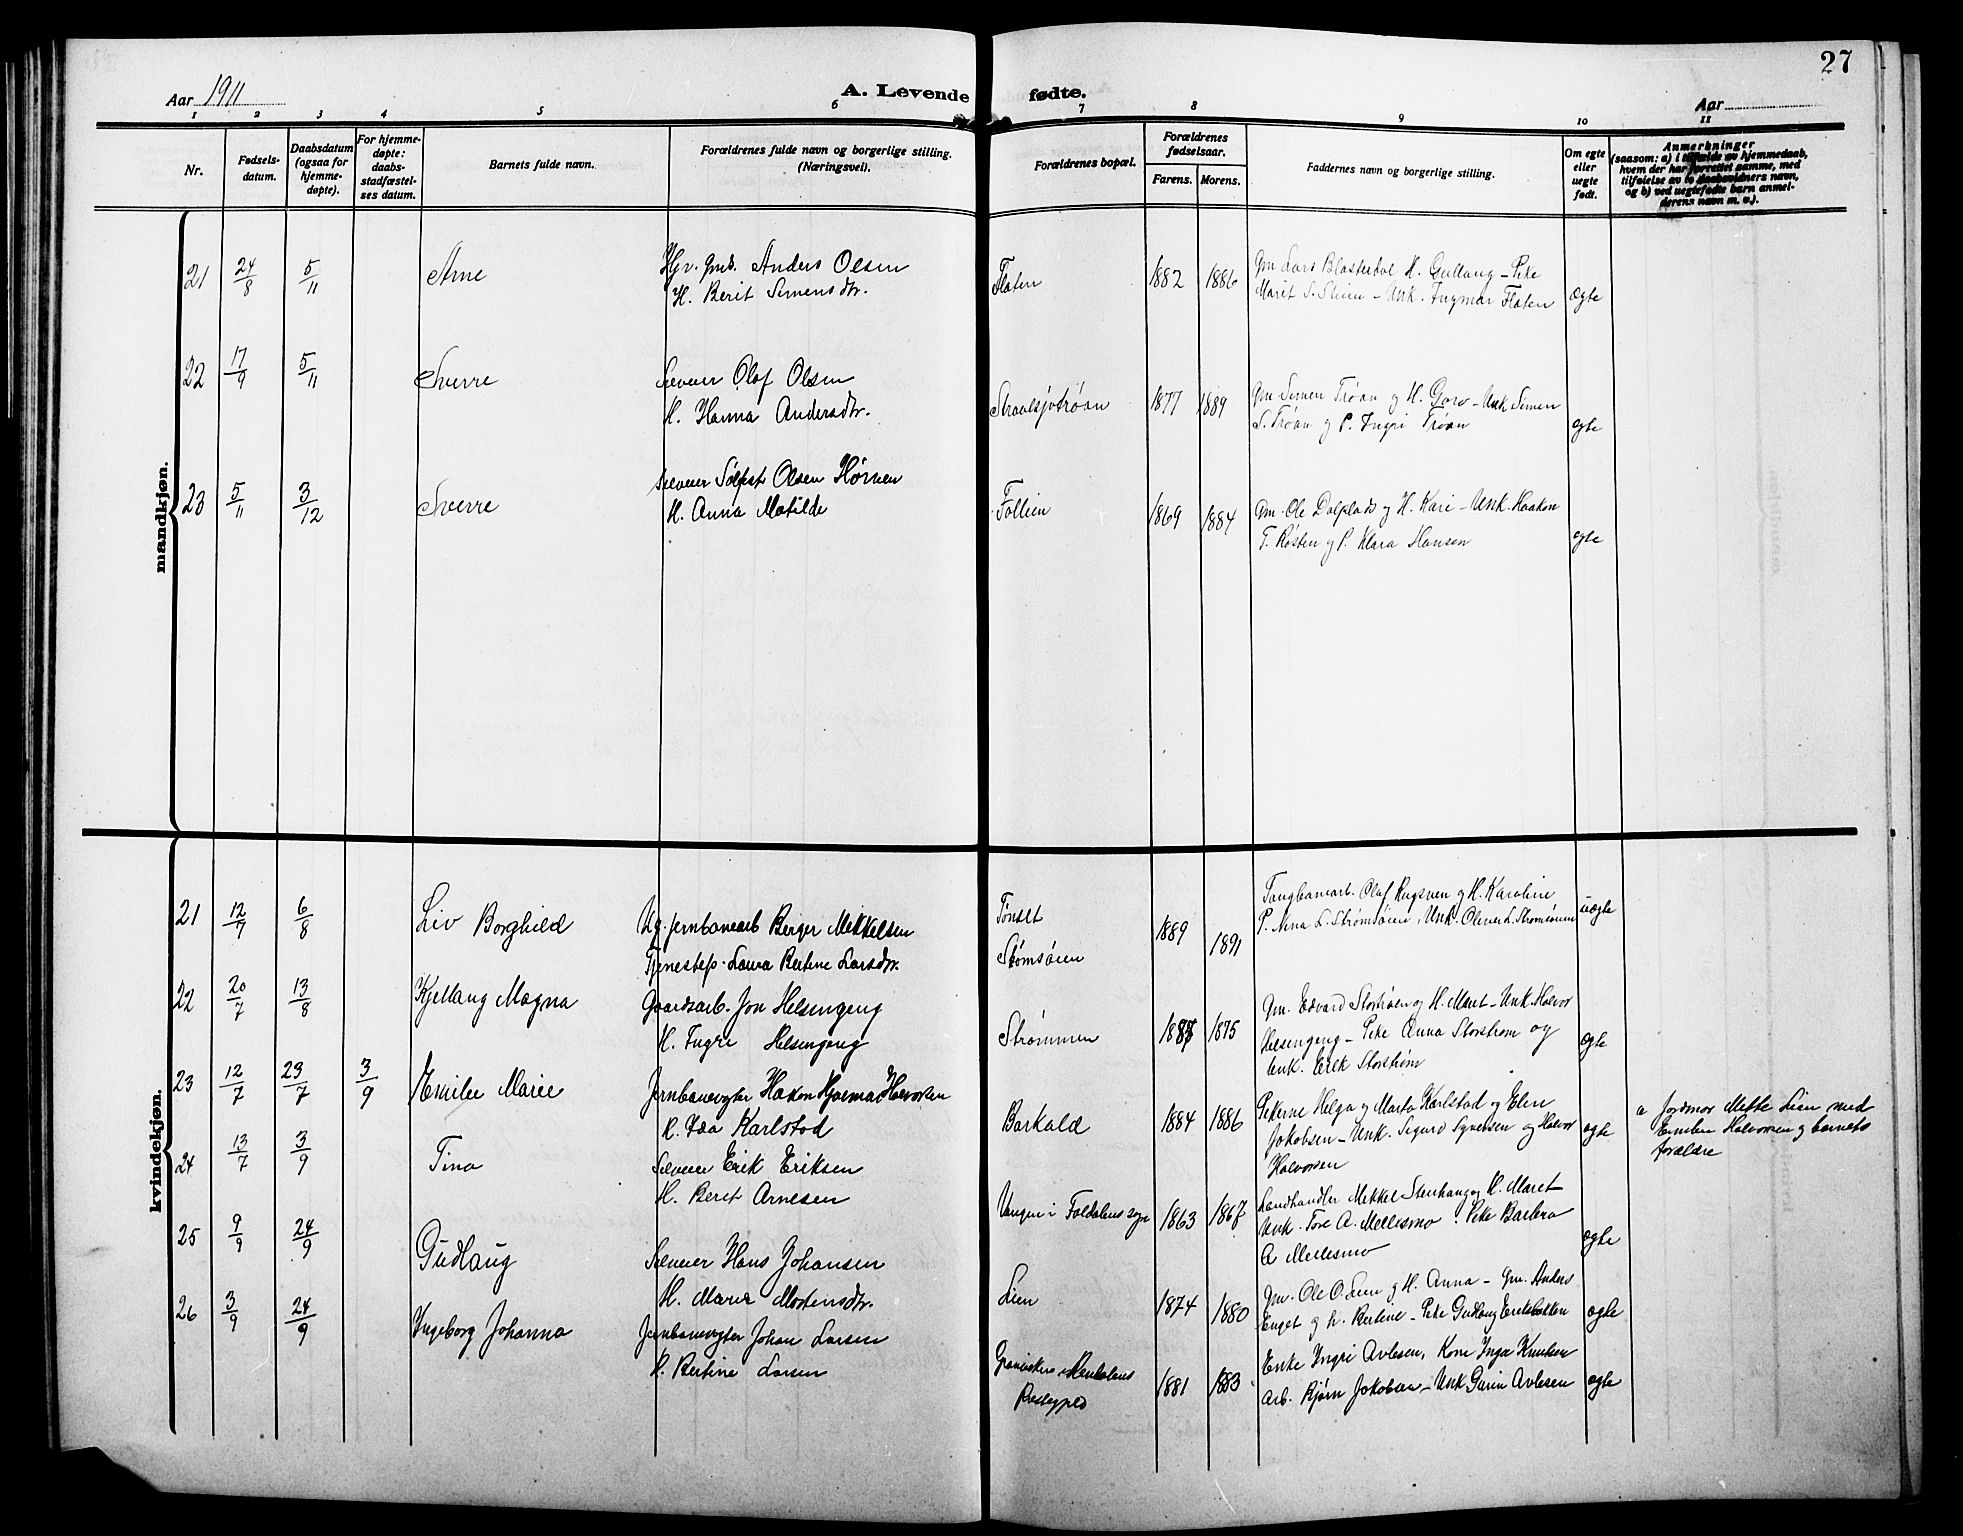 27
Aar 1911
A. Levende fødte.
Aar
1 2 3 4 5 6 7 8 9 10 11
Nr.
Fødsels-
datum.
Daabsdatum
(ogsaa for
hjemme-
døpte).
For hjemme-
døpte:
daabs-
stadfæstel-
ses datum.
Barnets fulde navn.
Forældrenes fulde navn og borgerlige stilling.
(Næringsvei).
Forældrenes bopæl.
Forældrenes
fødselsaar.
Farens. Morens.
Faddernes navn og borgerlige stilling.
Om egte
eller
uegte
født.
Anmerkninger
(saasom: a) i tilfælde av hjemmedaab,
hvem der har forrettet samme, med
tilføielse av to daabsvidners navn,
og b) ved uegtefødte barn anmel-
derens navn m. v.).
mandkjøn.
21 24/8 5/11 Arne
Gmd. Anders Olsen
H. Berit Simensdtr.
Flaten 1882 1886
Gm Lars Blæsterbal H. Gullaug - Pike
Marit S. Stien - Unk. Ingmar Flaten
ægte
22 17/9 5/11 Sverre
Selveier Olaf Olsen
H. Hanna Andersdtr.
Straalsjøtrøan 1877 1889
Gm Simen Trøan og H. Goro - Unk Simen
S. Trøan og P. Ingri Trøan
egte
23 5/11 3/12 Sverre
Selveier Solfest Olsen
H. Anna Matilde
Follien 1869 1884
Gm. Ole Dalplads og H. Kari - Unk. Haakon
T. Røsten og P. Klara Hansen
egte
kvindekjøn.
21 12/7 6/8 Liv Borghild
Ug. jernbanearb Birger Mikkelsen
Tjenestep. Laura Bertine Larsdtr.
Tønset
Strømsøien
1889 1891
Olaf Rugsveen og H. Karoline
P. Nina L. Strømsøien, Unk. Oliver L. Strømsøien
uægte
22 20/7 13/8 Kjellaug Magna
Gaardsarb. Jon Helsingeng
H. Ingri Helsingeng
Strømmen 1875
Gm. Edvard Storstrøen og H. Maret - Unk. Halvor
Helsingeng - Pike Anna Storstrøm og
Unk. Erik Storstrøm
ægte
23 12/7 23/7 3/9 Emilie Marie
Jernbanevogter Hakon Hjalmar Halvorsen
H. Ida Karlstad
Barkald 1884 1886
Pikerne Helga og Marta Karlstad og Elen
Jakobsen - Unk. Sigurd Syversen og Halvor
Halvorsen
ægte
a Jordmor Mette Lien med
Emilie Halvorsen og barnets
forældre
24 13/7 3/9 Tina
Selveier Erik Eriksen
H. Berit Arnesen
Vangen i Foldalens sogn 1863 1867
Landhandler Mikkel Stenhaug og H. Maret
Unk. Tore A. Mellesmo. Pike Barbro
A Mellesmo
ægte
25 9/9 24/9 Gudlaug
Selveier Hans Johansen
H. Maria Mortensdtr.
Lien 1874 1880
Gm. Ole O. Lien og H. Anna - Gm. Anders
Enget og h. Bertine - Pike Gudlaug Eriksbakken
ægte
26 3/9 24/9 Ingeborg Johanna
Jernbanevogter Johan Larsen
H. Bertine Larsen
Rendalens
Prestegjeld
1881 1883
Enke Ingri Avlesen, Kone Inga Knudsen
Arb. Bjørn Jakobsen - Unk Garin Avlesen
ægte